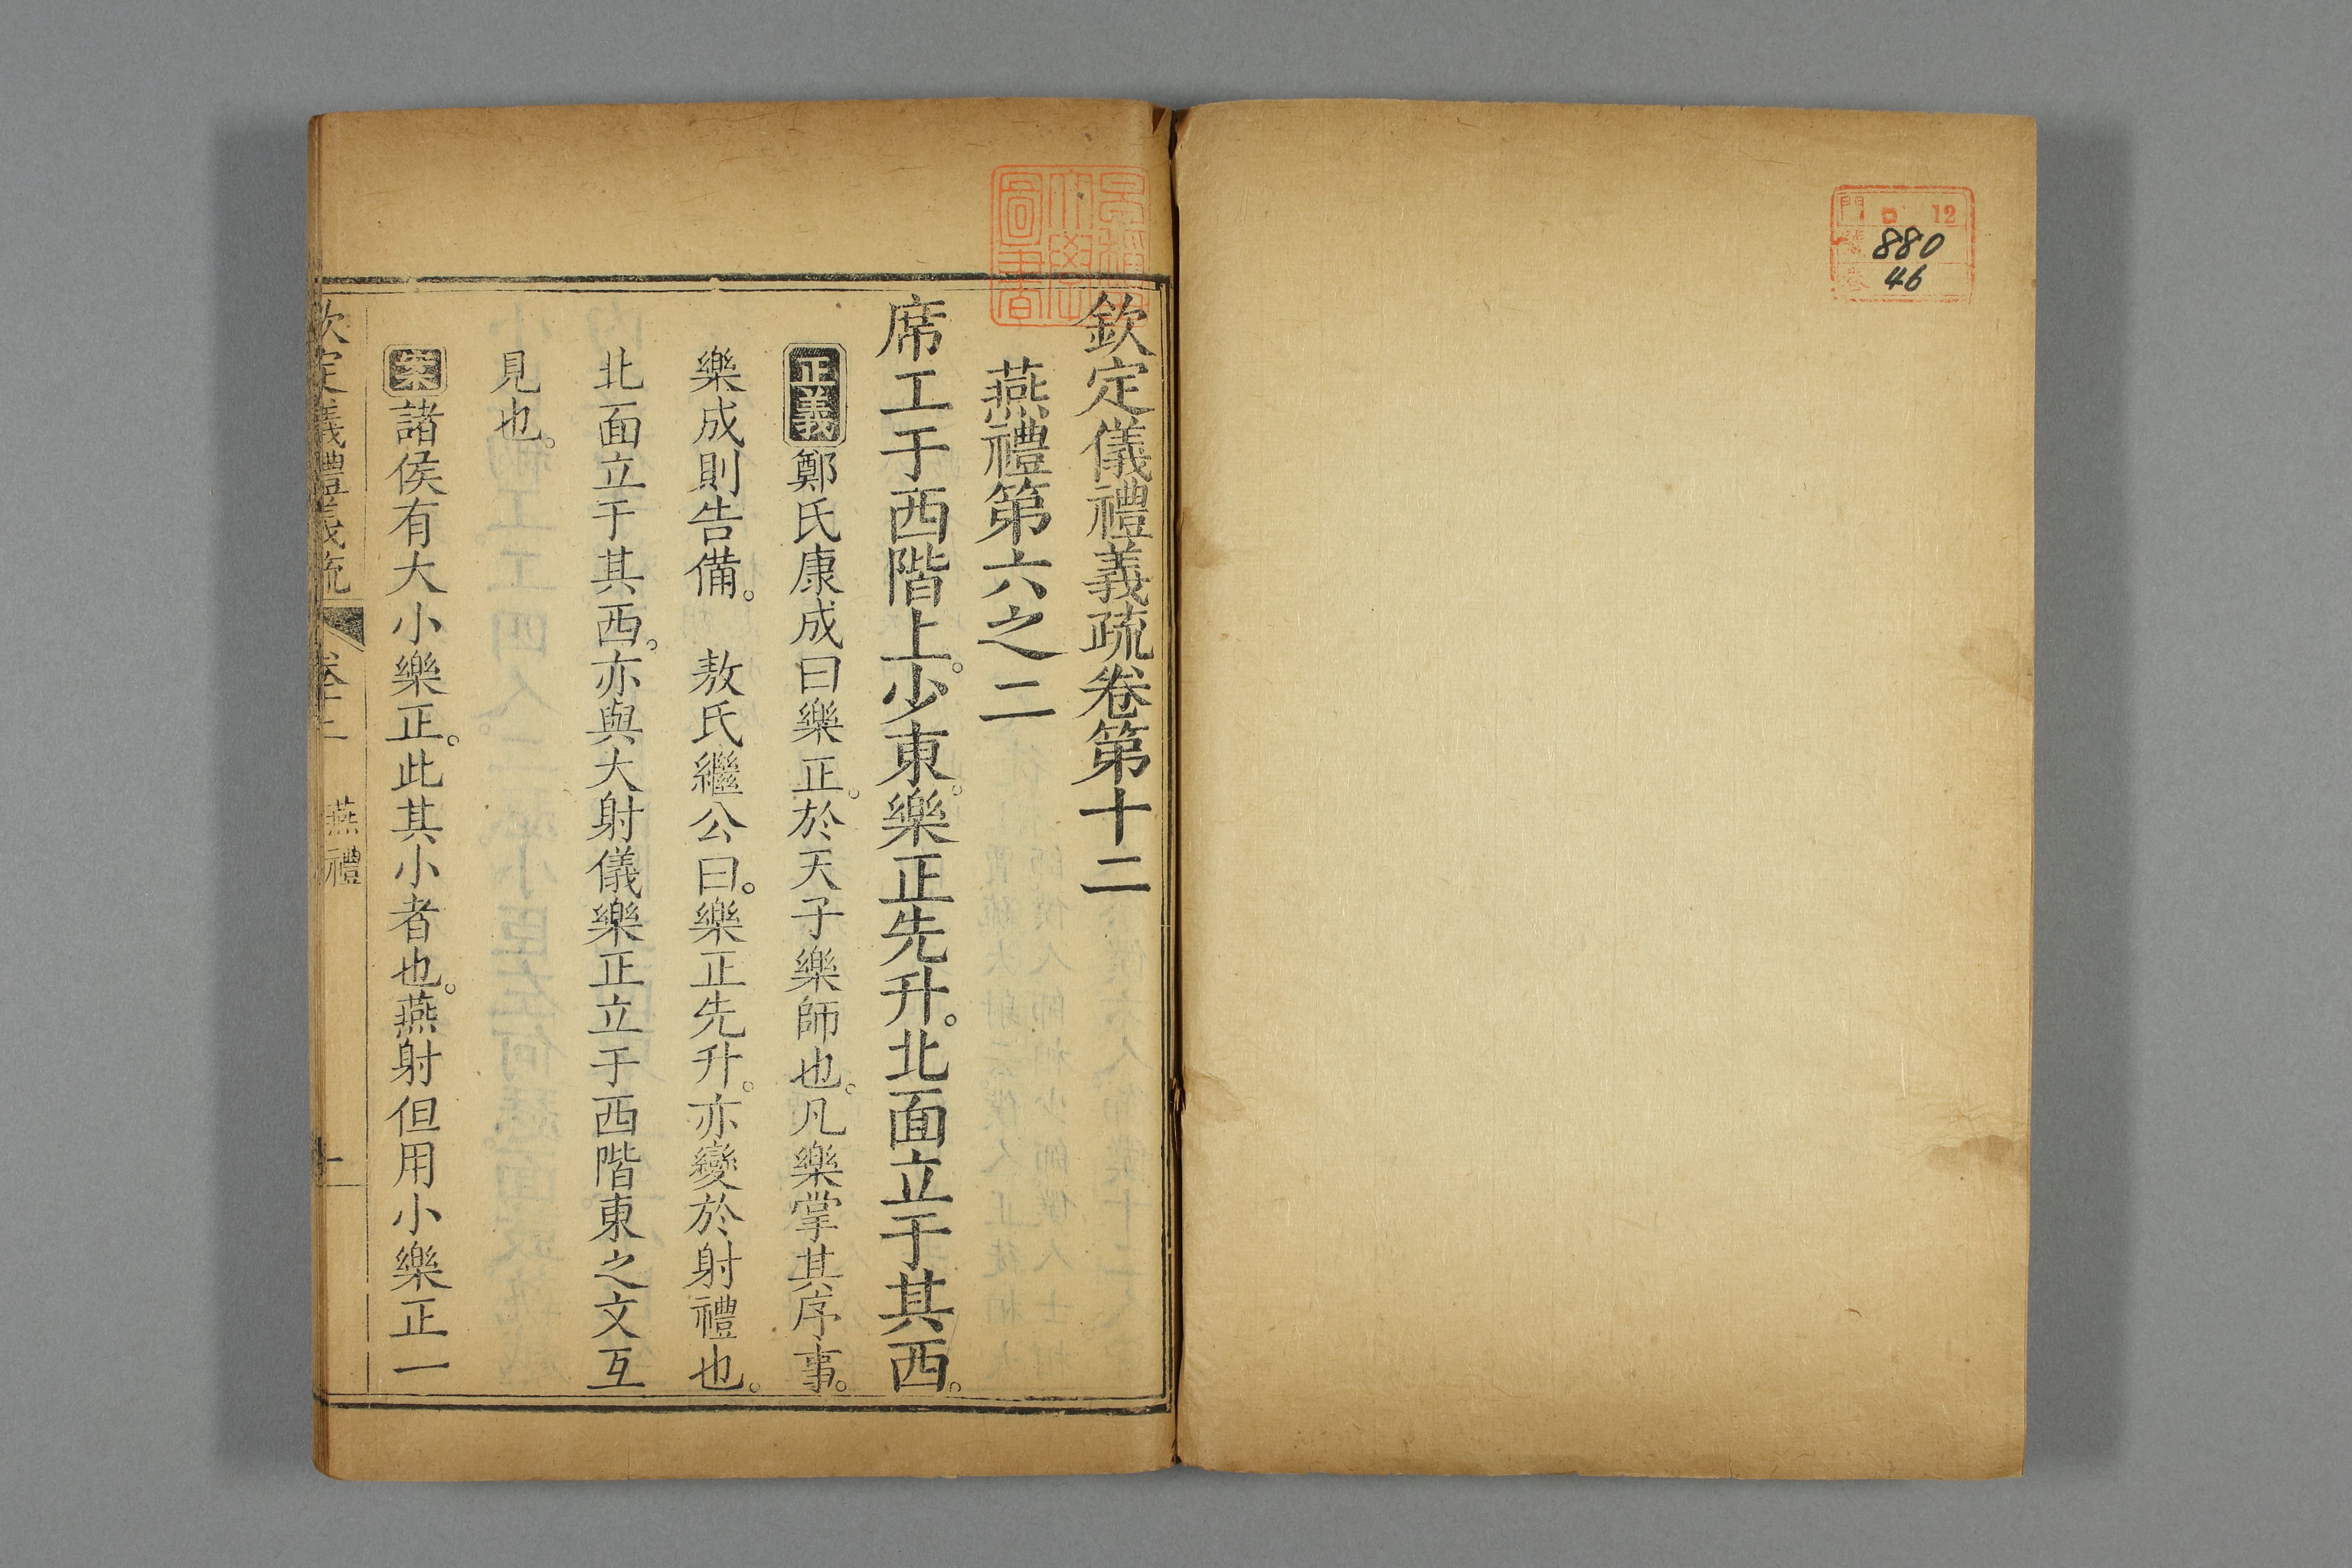 門 口 12
號 880
卷 46
早稲田大學圖書
欽定儀禮義疏卷第十二
燕禮第六之二
席工于西階上。少東。樂正先升。北面立于其西。
正義鄭氏康成曰樂正。於天子樂師也。凡樂掌其序事。
樂成則告備。 敖氏繼公曰。樂正先升。亦變於射禮也。
北面立于其西。亦與大射儀樂正立于西階東之文互
見也。
案諸侯有大小樂正。此其小者也。燕射但用小樂正一
欽定儀禮義疏 卷十二 燕禮